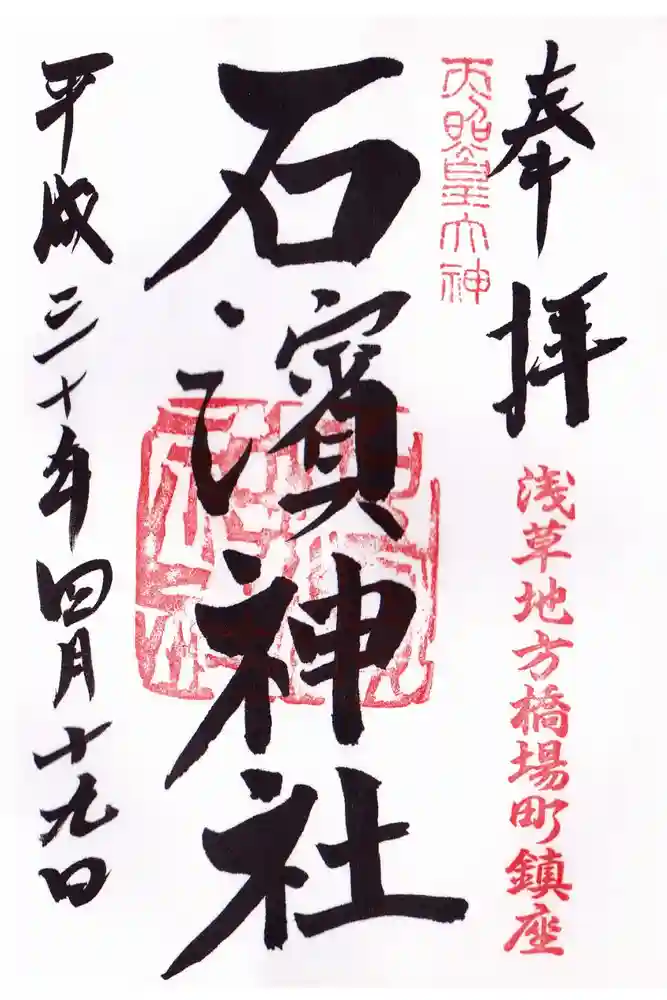 奉拝
天照皇大神
浅草地方橋場町鎮座
石濱神社
平成三十年四月十九日